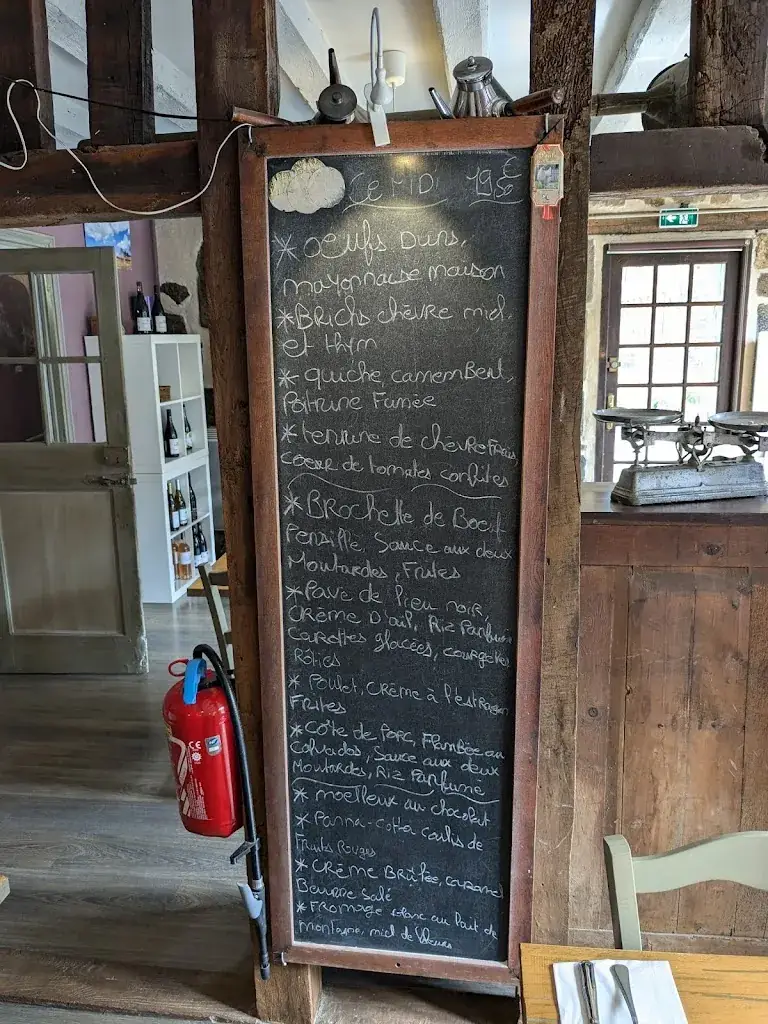 Ce MiDi 19€50
* oeufs Durs,
mayonnaise maison
* Bricks chèvre miel,
et thym
* quiche, camemBert,
Poitrine Fumée
* terrine de chèvre Frais,
coeur de tomates confites
* Brochette de Boeuf
Persillé, Sauce aux deux
Moutardes, Frites
* Pavé de lieu noir,
Crème D'ail, Riz Parfumé
carottes glacées, courgettes
Rôties
* Poulet, Crème à l'estragon
Frites
* Côte de Porc, FlamBée au
Calvados, Sauce aux deux
Moutardes, Riz Parfumé
* moelleux au chocolat
* Panna-Cotta coulis de
Fruits Rouges
* Crème Brûlée, caramel
Beurre Salé
* Fromage Blanc au lait de
montagne, miel de